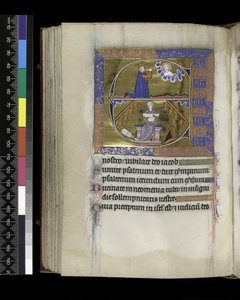 nostro: iubilate deo iacob
Sumite psalmum et date tympanum:
psalterium iocundum cum cythara
Bucinate in neomenia tuba: in insigni
die sollempnitatis nostre
Quia preceptum in isrl est: et iudicium deo